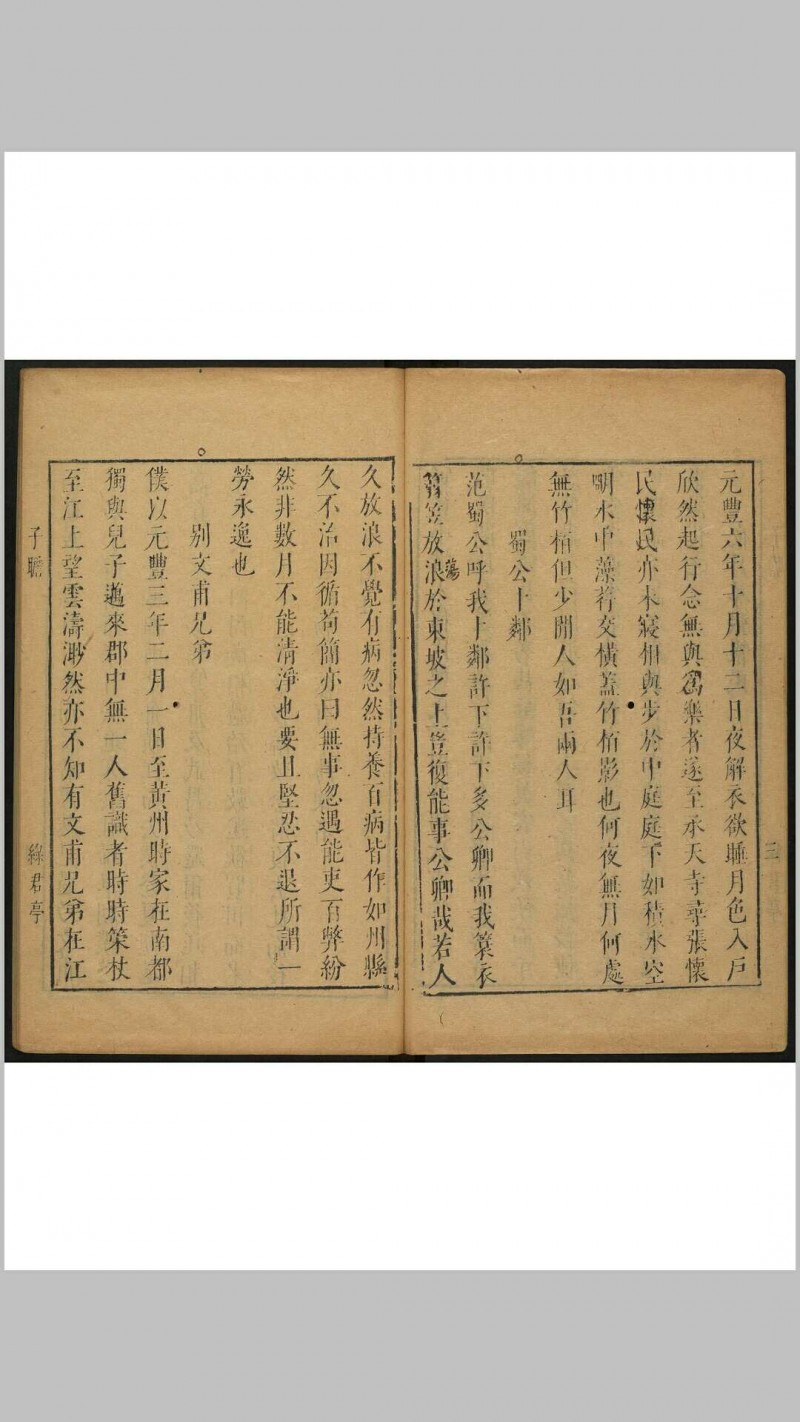 元豐六年十月十二日夜解衣欲睡月色入戶
欣然起行念無與爲樂者遂至承天寺尋張懷
民懷民亦未寢相與步於中庭庭下如積水空
明水中藻荇交橫蓋竹栢影也何夜無月何處
無竹栢但少閒人如吾兩人耳
蜀公卜鄰
范蜀公呼我卜鄰許下許下多公卿而我蓑衣
篛笠放浪於東坡之上豈復能事公卿哉若人
蕩
三
久放浪不覺有病忽然持養百病皆作如州縣
久不治因循苟簡亦曰無事忽遇能吏百弊紛
然非數月不能清淨也要且堅忍不退所謂一
勞永逸也
別文甫兄弟
僕以元豐三年二月一日至黃州時家在南都
獨與兒子邁來郡中無一人舊識者時時策杖
至江上望雲濤渺然亦不知有文甫兄弟在江
子瞻
綠君亭